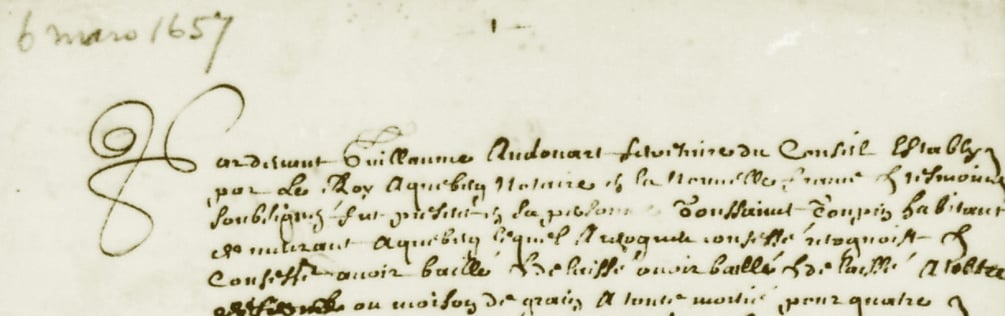 6 mars 1657
Pardevant Guillaume Audouart secretaire du Conseil Estably
par Le Roy Aquebecq Notaire en la Nouvelle france & tesmoins
soubsignez fut present en sa personne Toussainct Toupin habitant
demeurant Aquebecq lequel recognoist &
Confesse avoir baillé & delaissé avoir baillé & de laissé A
ou moison de grain A moitié pour quatre